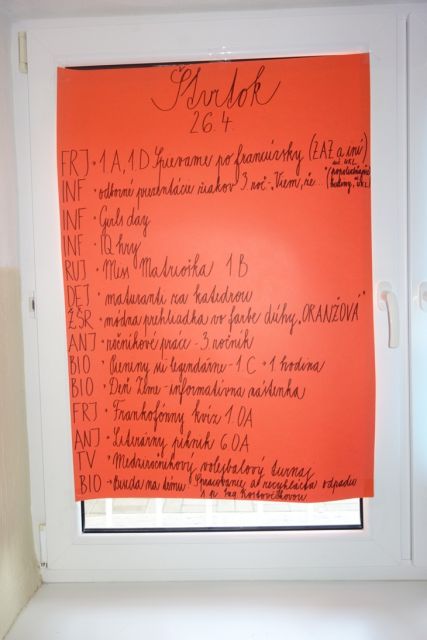 Štvrtok
26.4.
FRJ • 1A, 1D Spievame po francúzsky (ZAZ a iní)
INF • odborné prezentácie žiakov 3. roč - „Viem, že...
INF • Girls day
INF • IQ hry
RUJ • Miss Matrioška 1B
DEJ • maturanti za katedrou
ŽŠR • módna prehliadka vo farbe dúhy „ORANŽOVÁ"
ANJ • ročníkové práce - 3 ročník
BIO • Pieniny sú legendárne - 1.C → 1 hodina
BIO • Deň Zeme - informatívna nástenka
FRJ • Frankofónny kvíz 1.OA
ANJ • Literárny piknik 6OA
TV • Medziročníkový volejbalový turnaj
BIO → Beseda na tému "Spracovanie a recyklácia odpadu
s p. Ing.